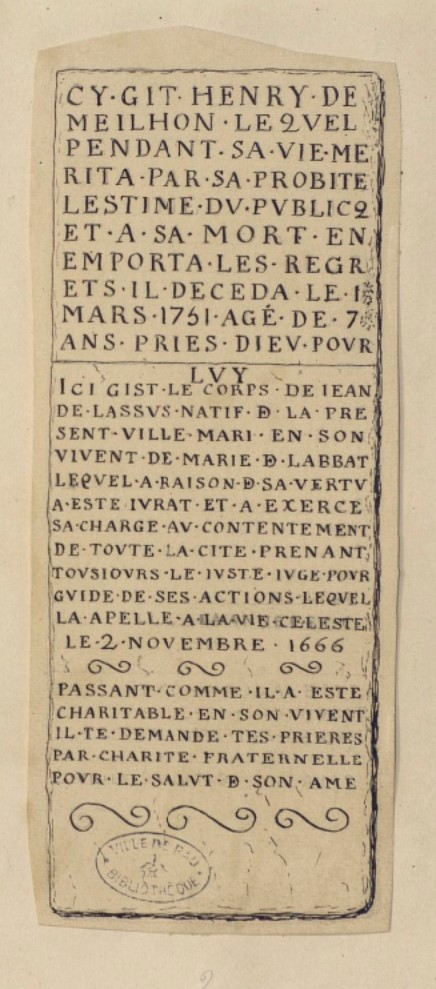 CY·GIT·HENRY·DE
MEILHON·LEQVEL
PENDANT·SA·VIE·ME
RITA·PAR·SA·PROBITE
LESTIME·DV·PVBLICQ
ET·A·SA·MORT·EN
EMPORTA·LES·REGR
ETS·IL·DECEDA·LE·1
MARS·1751·AGÉ·DE·7
ANS·PRIES·DIEV·POVR
LVY
ICI GIST·LE CORPS·DE IEAN
DE·LASSVS·NATIF·Đ·LA·PRE
SENT·VILLE·MARI·EN·SON
VIVENT·DE·MARIE·Đ·LABBAT
LEQVEL·A·RAISON·Đ·SA·VERTV
A·ESTE IVRAT·ET·A·EXERCE
SA·CHARGE·AV·CONTENTEMENT
DE·TOVTE·LA·CITE·PRENANT
TOVSIOVRS·LE·IVSTE·IVGE·POVR
GVIDE·DE·SES·ACTIONS·LEQVEL
LA·APELLE·A·LA·VIE·CELESTE
LE·2·NOVEMBRE·1666
PASSANT·COMME·IL·A·ESTE
CHARITABLE·EN·SON·VIVENT
IL·TE·DEMANDE·TES·PRIERES
PAR·CHARITE·FRATERNELLE
POVR·LE·SALVT·Đ·SON·AME
VILLE DE PAU
BIBLIOTHÈQUE